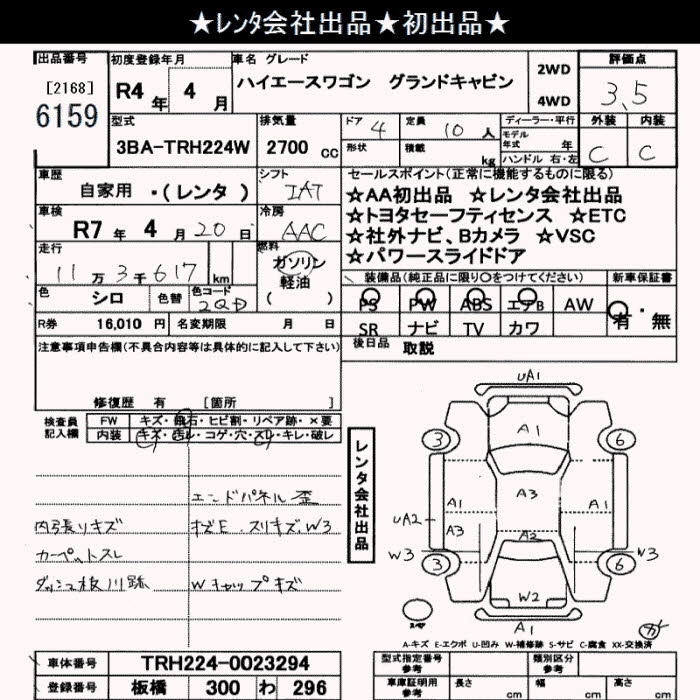 ★レンタ会社出品★初出品★
出品番号
[2168]
6159
初度登録年月
R4 年 4 月
車名 グレード
ハイエースワゴン グランドキャビン
2WD
4WD
評価点
3.5
外装 内装
C C
型式
3BA-TRH224W
排気量
2700 cc
ドア 4
定員 10 人
形状
積載 kg
ディーラー・平行
モデル年式 年
ハンドル 右・左
車歴
自家用 ・(レンタ )
シフト
IAT
車検
R7 年 4 月 20 日
冷房
AAC
走行
11万3千617 km
燃料
ガソリン
軽油
( )
色 シロ
色替
色コード
2QD
R券 16,010 円
名変期限 月 日
セールスポイント(正常に機能するものに限る)
☆AA初出品 ☆レンタ会社出品
☆トヨタセーフティセンス ☆ETC
☆社外ナビ、Bカメラ ☆VSC
☆パワースライドドア
装備品(純正品に限り○をつけてください)
新車保証書
PS PW ABS エアB AW
SR ナビ TV カワ
有・無
後日品 取説
注意事項申告欄(不具合内容等は具体的に記入して下さい)
修復歴 有 [箇所 ]
検査員
記入欄
FW キズ・飛石・ヒビ割・リペア跡・×要
内装 キズ・汚レ・コゲ・穴・スレ・キレ・破レ
エンドパネル歪
内張りキズ
キズE、スリキズ、W3
カーペットスレ
Wキャップキズ
レンタ会社出品
UA1
A1
3
6
A3
A1
A1
UA2
A3
A2
W3
W3
3
6
W2
A1
スペヤ
ガ
A-キズ E-エクボ U-凹み W-補修跡 S-サビ C-腐食 XX-交換済
車体番号 TRH224-0023294
登録番号 板橋 300 わ 296
型式指定番号
参考
類別区分
参考
車庫証明用
参考
長さ cm
幅 cm
高さ cm